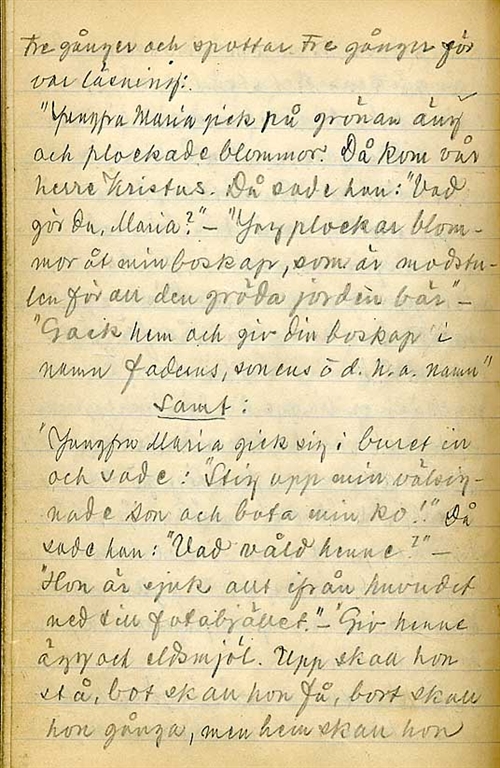 Tre gånger och spottar tre gånger för
var läsning:
"Jungfru Maria gick på grönan äng
och plockade blommor. Då kom vår
herre Kristus. Då sade han: "Vad
gör du, Maria?" – "Jag plockar blom-
mor åt min boskap, som är modstu-
len för all den gröda jorden bär" –
"Gack hem och giv din boskap i
namn faderns, sonens o d. h. a. namn"
Samt:
"Jungfru Maria gick sig i buret in
och sade: "Stig upp min välsig-
nade son och bota min ko!" Då
sade han: "Vad våld henne?" –
"Hon är sjuk allt ifrån huvudet
ned till fotabjället." – "Giv henne
och eldsmjöl. Upp skall hon
stå, bot skall hon få, bort skall
hon gånga, men hem skall hon